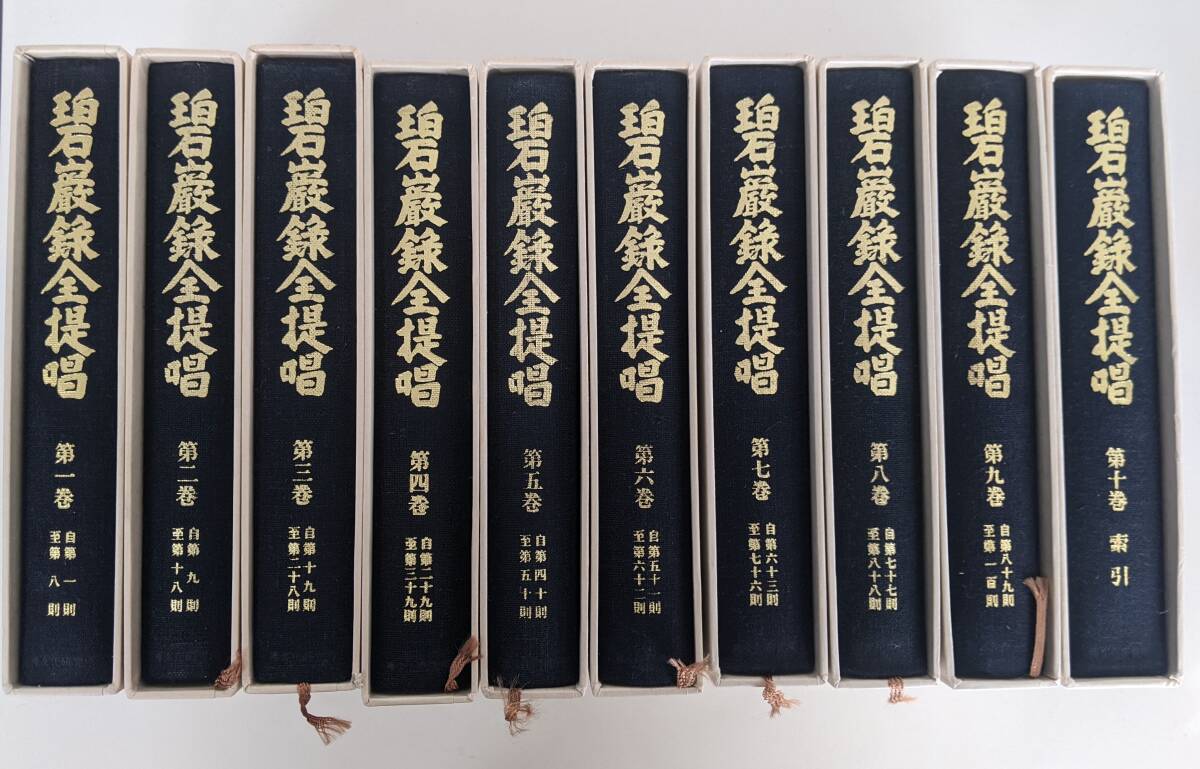 碧巌錄全提唱
第一巻
自第一則
至第八則
碧巌錄全提唱
第二巻
自第九則
至第十八則
碧巌錄全提唱
第三巻
自第十九則
至第二十八則
碧巌錄全提唱
第四巻
自第二十九則
至第三十九則
碧巌錄全提唱
第五巻
自第四十則
至第五十則
碧巌錄全提唱
第六巻
自第五十一則
至第六十二則
碧巌錄全提唱
第七巻
自第六十三則
至第七十六則
碧巌錄全提唱
第八巻
自第七十七則
至第八十八則
碧巌錄全提唱
第九巻
自第八十九則
至第一百則
碧巌錄全提唱
第十巻
索引